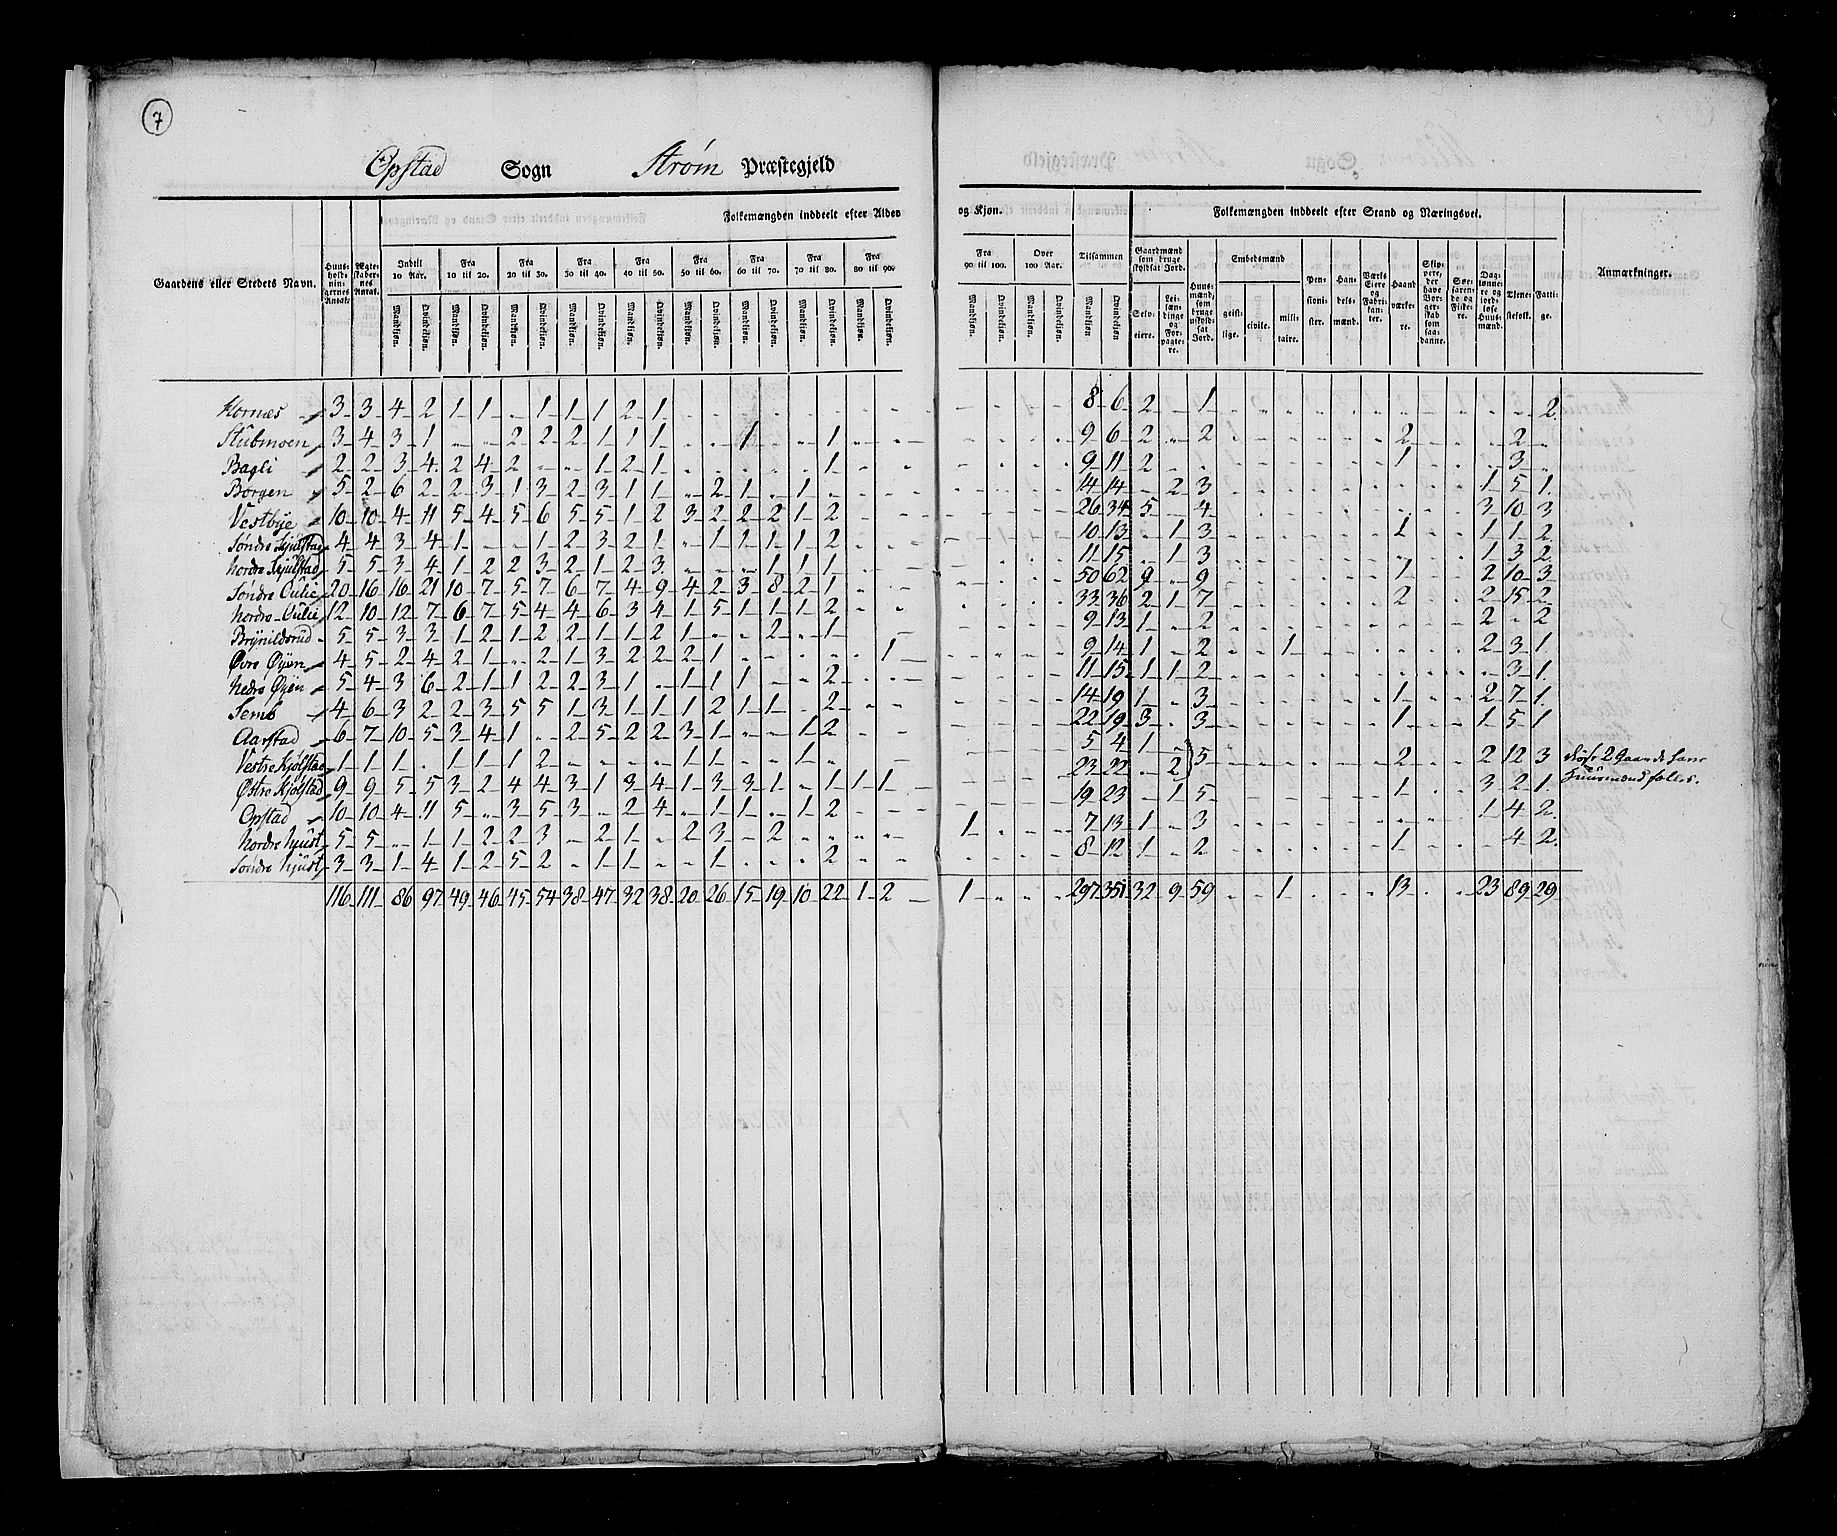 7
Opstad Sogn Strøm Præstegjeld
Gaardens eller Steders Navn. Huusholdningernes Antal. Ægteskabernes Antal. Folkemængden inddeelt efter Alder og Kjøn. Tilsammen Folkemængden inddeelt efter Stand og Næringsvei. Anmærkninger.
Indtil 10 Aar. Fra 10 til 20. Fra 20 til 30. Fra 30 til 40. Fra 40 til 50. Fra 50 til 60. Fra 60 til 70. Fra 70 til 80. Fra 80 til 90. Fra 90 til 100. Over 100 Aar.
Gaardmænd som bruge skyldsat Jord. Selveiere. Leilændinge og Forpagtere. Huusmænd, som bruge uskyldsat Jord. Embedsmænd geistlige. civile. militaire. Pensionister. Handelsmænd. Værks Eiere og Fabrikanter. Haandværkere. Skippere, der have Borgerskab som saadanne. Søefarende og Fiskere. Daglønnere og jordløse Huusmænd. Tjenestefolk. Fattige.
Mandkjøn. Qvindekjøn. Mandkjøn. Qvindekjøn. Mandkjøn. Qvindekjøn. Mandkjøn. Qvindekjøn. Mandkjøn. Qvindekjøn. Mandkjøn. Qvindekjøn. Mandkjøn. Qvindekjøn. Mandkjøn. Qvindekjøn. Mandkjøn. Qvindekjøn. Mandkjøn. Qvindekjøn. Mandkjøn. Qvindekjøn. Mandkjøn. Qvindekjøn.
Hornæs 3 3 4 2 1 1 1 1 1 2 1 8 6 2 1 2
Stubmoen 3 4 3 1 2 2 2 1 1 1 1 1 9 6 2 2 2 2
Bagli 2 2 3 4 2 4 2 1 2 1 1 9 11 2 1 3
Borgen 5 2 6 2 2 3 1 3 2 3 1 1 2 1 1 14 14 2 3 1 5 1
Vestbye 10 10 4 11 5 4 5 6 5 5 1 2 3 2 2 2 1 2 26 34 5 4 3 10 3
Søndre Skjulstad 4 4 3 4 1 1 2 3 2 1 1 1 1 1 2 10 13 1 3 1 1 1 2
Nordre Skjulstad 5 5 3 4 1 2 2 3 2 1 2 3 1 1 1 11 15 1 3 1 3 2
Søndre Oulie 20 16 16 21 10 7 5 7 6 7 4 9 4 2 3 8 2 1 50 62 9 9 1 2 10 3
Nordre Oulie 12 10 12 7 6 7 5 4 4 6 3 4 1 5 1 1 1 2 33 36 2 1 7 2 2 15 2
Brynildsrud 5 5 3 3 1 2 1 2 2 1 1 2 1 2 1 9 13 1 2 2 2
Øvre Øyen 4 5 2 4 2 1 2 1 3 2 2 2 1 1 9 14 1 2 1 2 3 1
Nedre Øyen 5 4 3 6 2 1 1 2 2 3 1 1 1 1 2 11 15 1 1 2 3 1
Semb 4 6 3 2 2 3 5 5 1 3 1 1 1 2 1 1 2 14 19 1 3 1 2 7 1
Aarstad 6 7 10 5 3 4 1 2 5 2 2 3 1 1 2 22 19 3 3 1 1 5 1
Vestre Kjølstad 1 1 1 1 1 1 2 1 1 1 5 4 1 5 2 2 12 3 disse 2 Gaarde have
Østre Kjølstad 9 9 5 5 3 2 4 4 3 1 3 4 1 3 3 1 1 1 1 23 22 2 Huusmænd fælles.
Opstad 10 10 4 11 5 3 5 3 2 4 1 1 1 2 19 23 1 5 1 3 2 1
Nordre Hjust 5 5 1 1 2 2 3 2 1 2 3 2 1 7 13 1 3 1 4 2
Søndre Hjust 3 3 1 4 1 2 5 2 1 1 1 2 8 12 1 2 1 4 2
116 111 86 97 49 46 45 54 38 47 32 38 20 26 15 19 10 22 1 2 1 297 351 32 9 59 1 13 23 89 29